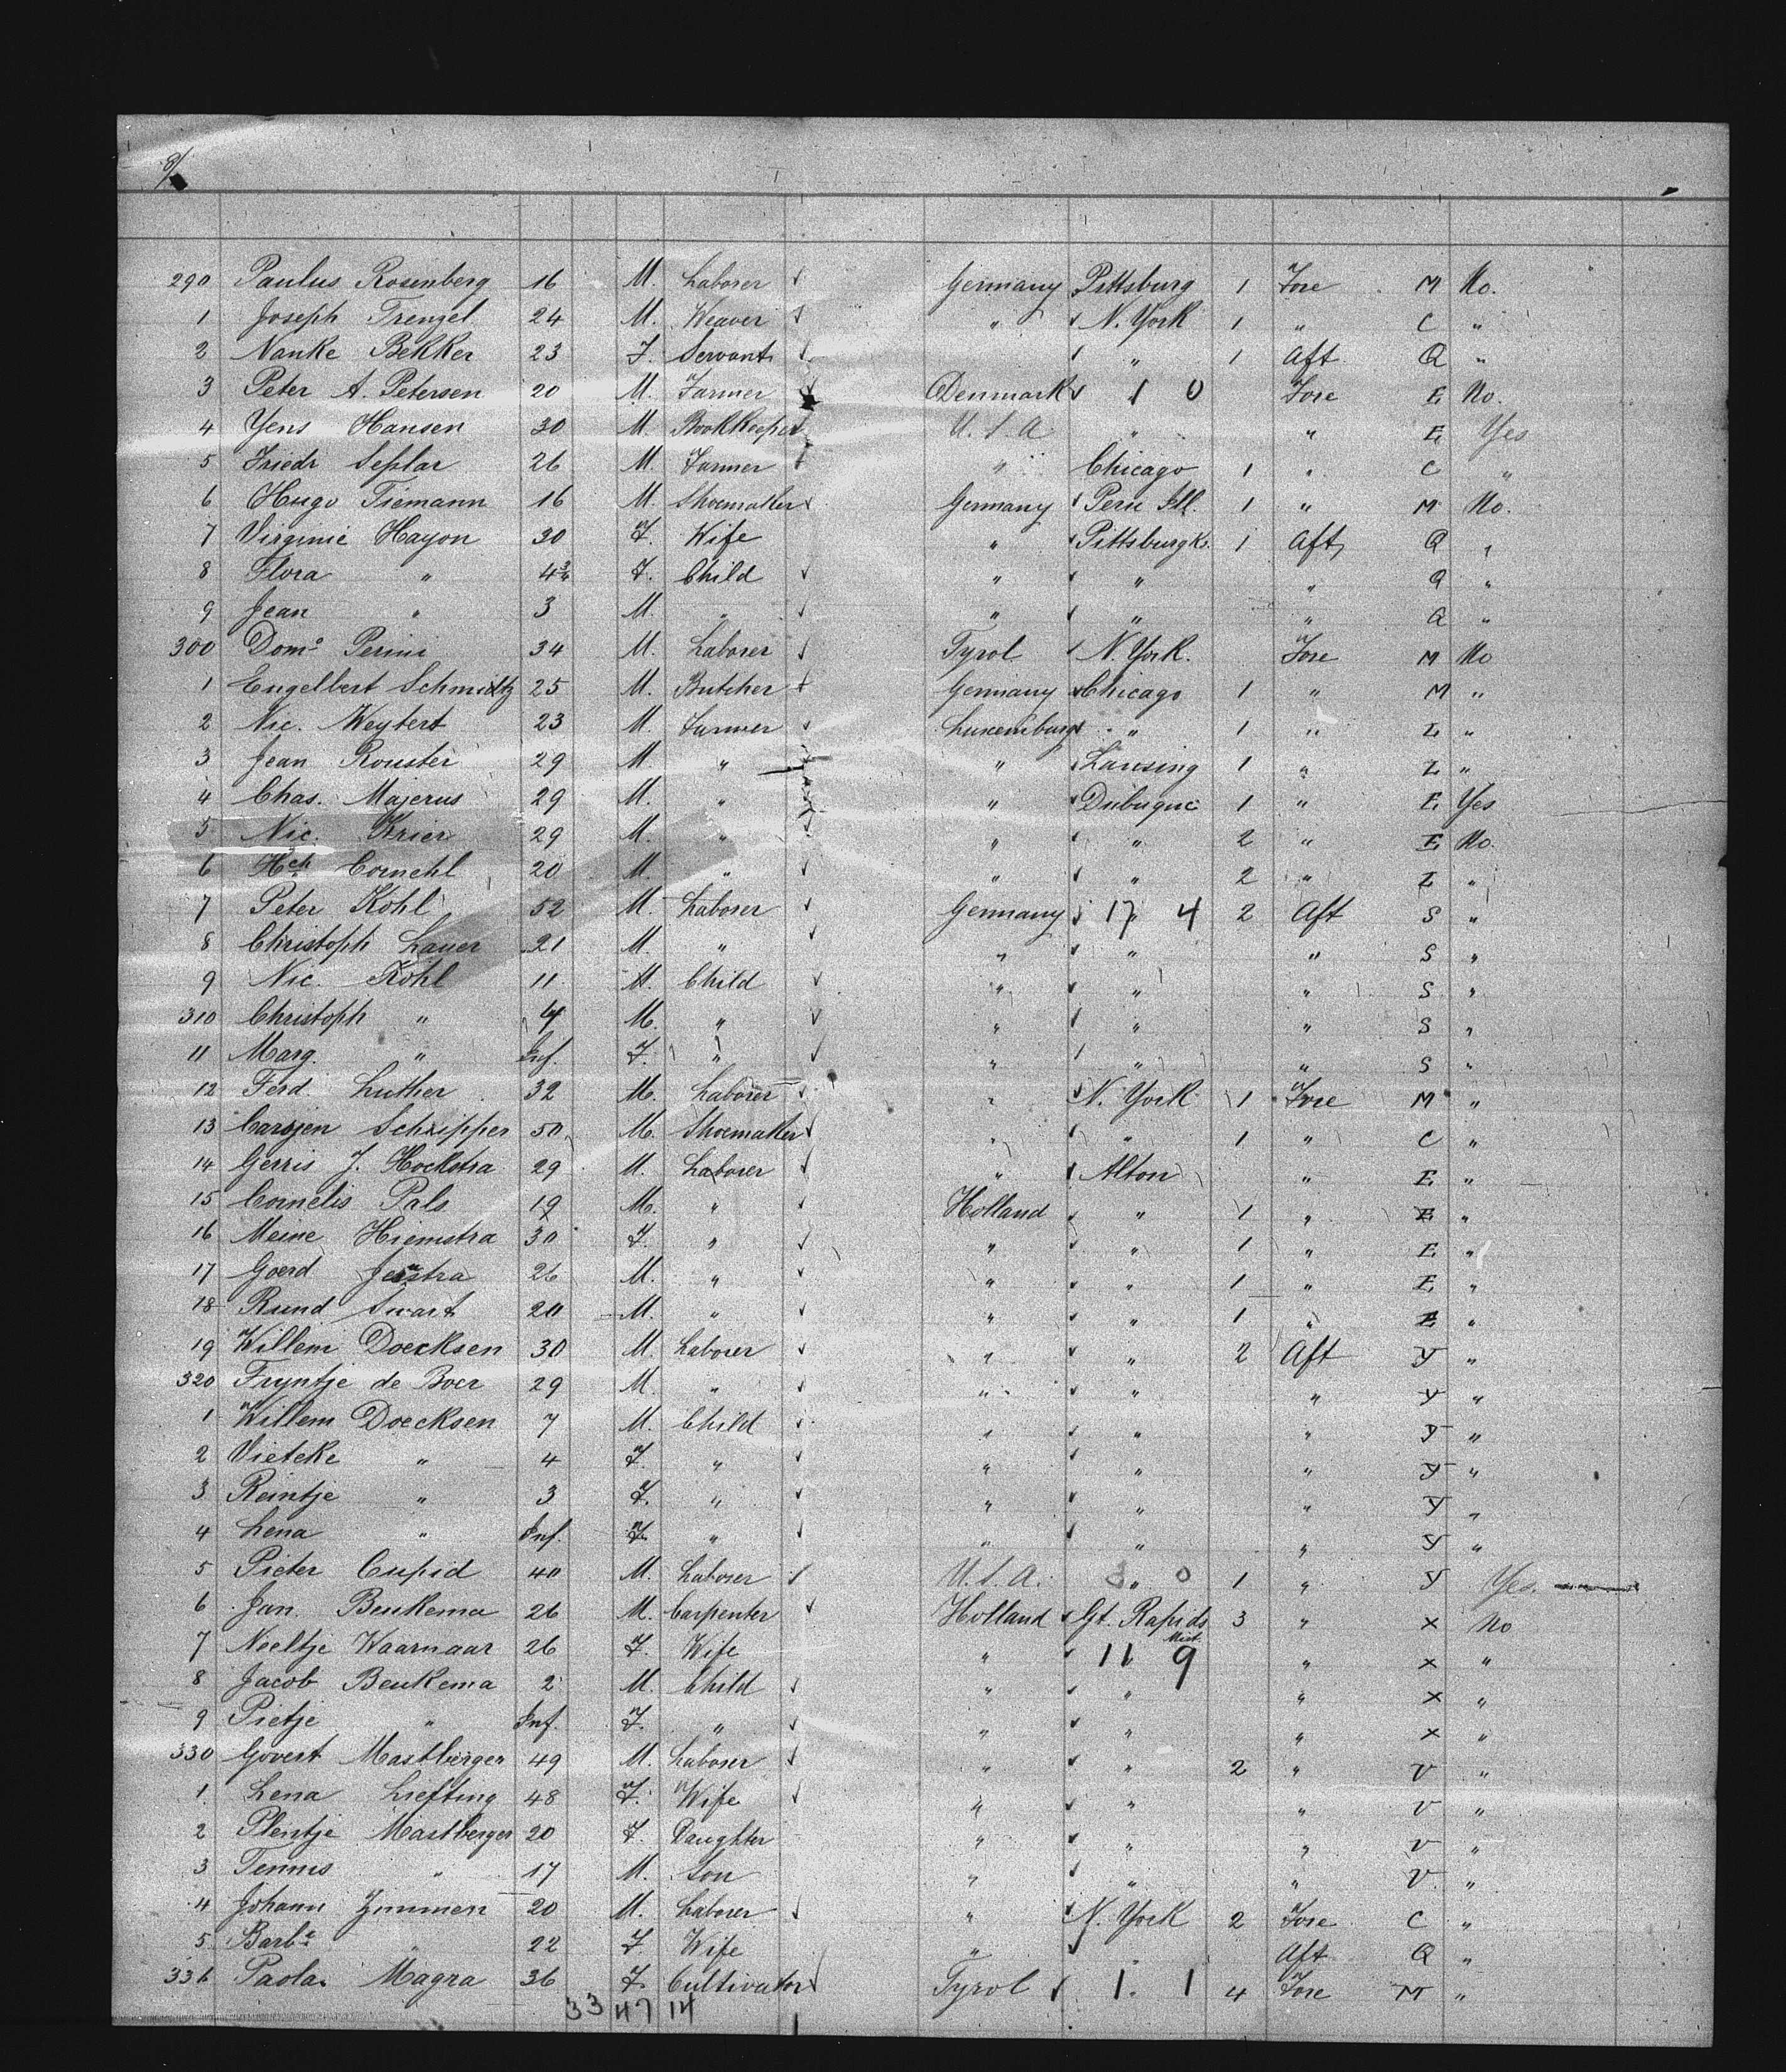 8/
290 Paulus Rosenberg 16 M. Laborer ✓ Germany Pittsburg 1 Fore M No.
1 Joseph Trenzel 24 M. Weaver ✓ " ✓ N. York 1 " C "
2 Nanke Bekker 23 F. Servant ✓ ✓ " 1 Aft Q "
3 Peter A. Petersen 20 M. Farmer ✓ Denmark ✓ 1 0 Fore E No.
4 Yens Hansen 30 M. Bookkeeper U.S.A. " " E Yes
5 Friedr Seplar 26 M. Farmer " Chicago 1 " C "
6 Hugo Tiemann 16 M. Shoemaker ✓ Germany ✓ Peru Ill. 1 " M No.
7 Virginie Hayon 30 F. Wife " ✓ Pittsburgh. 1 Aft Q "
8 Flora " 4 F. Child ✓ " ✓ " " Q "
9 Jean " 3 M. " ✓ " ✓ " " Q "
300 Domo Perini 34 M. Laborer ✓ Tyrol ✓ N. York. Fore M No
1 Engelbert Schmidtz 25 M. Butcher Germany ✓ Chicago 1 " M "
2 Nic. Weytert 23 M. Farmer ✓ Luxemburg ✓ " 1 " Z "
3 Jean Rouster 29 M. " " ✓ Lansing 1 " Z "
4 Chas. Majerus 29 M. " " ✓ Dubuque 1 " E Yes
5 Nic. Krier 29 M. " ✓ " ✓ " 2 " E No.
6 Hch Cornehl 20 M. " ✓ " ✓ " 2 " Z "
7 Peter Kohl 52 M. Laborer ✓ Germany ✓ 17 " 4 2 Aft S "
8 Christoph Lauer 21 M. " ✓ " ✓ " " S "
9 Nic. Kohl 11 M. Child ✓ " ✓ " " S "
310 Christoph " 4 M. " ✓ " ✓ " " S "
11 Marg. " Inf. F. " ✓ " ✓ " " S "
12 Ferd. Luther 32 M. Laborer ✓ " ✓ N. York 1 Fore M "
13 Carsjen Schripper 50 M. Shoemaker ✓ " ✓ " 1 " C "
14 Gerris J. Hockstra 29 M. Laborer ✓ " ✓ Alton " E "
15 Cornelis Pals 19 M. " ✓ Holland ✓ " 1 " E "
16 Meine Hiemstra 30 F. " ✓ " ✓ " 1 " E "
17 Goerd 26 M. " ✓ " ✓ " 1 " E "
18 Rund Swart 20 M. " ✓ " ✓ " 1 " E "
19 Willem Doecksen 30 M. Laborer ✓ " ✓ " 2 Aft Y "
320 Fryntje de Boer 29 M. " ✓ " ✓ " " Y "
1 Willem Doecksen 7 M. Child ✓ " ✓ " " Y "
2 Vietcke " 4 F. " ✓ " ✓ " " Y "
3 Reintje " 3 F. " ✓ " ✓ " " Y "
4 Lena " Inf. F. " ✓ " ✓ " " Y "
5 Pieter Cupid 40 M. Laborer ✓ U.S.A. 3 " 0 1 " Y Yes.
6 Jan. Beukema 26 M. Carpenter ✓ Holland ✓ Gt. Rapids 3 " X No
Mict.
7 Neeltje Waarnaar 26 F. Wife " ✓ 11 9 " X "
8 Jacob Beukema 2 M. Child ✓ " ✓ " " X "
9 Pietje " Inf. F. " ✓ " ✓ " " X "
330 Govert Mastberger 49 M. Laborer ✓ " ✓ " 2 " V "
1 Lena Liefting 48 F. Wife ✓ " ✓ " " V "
2 Plentje Mastberger 20 F. Daughter " ✓ " " V "
3 Tennis " 17 M. Son " ✓ " " V "
4 Johann Zimmen 20 M. Laborer ✓ " ✓ N. York 2 Fore C "
5 Barba " 22 F Wife " ✓ " Aft Q "
336 Paola Magra 36 F. Cultivator ✓ Tyrol ✓ 1. 1 4 Fore M "
33 47 14